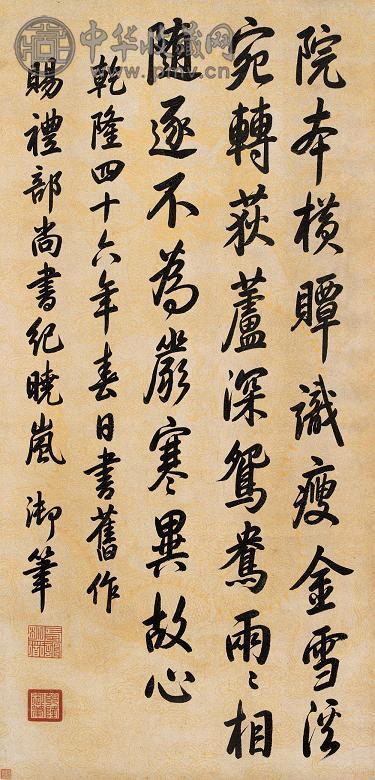 中华收藏网
院本橫贉識瘦金雪溪
宛轉荻蘆深鴛鴦兩〻相
隨逐不為嚴寒異故心
乾隆四十六年春日書舊作
賜禮部尚書紀曉嵐 御筆